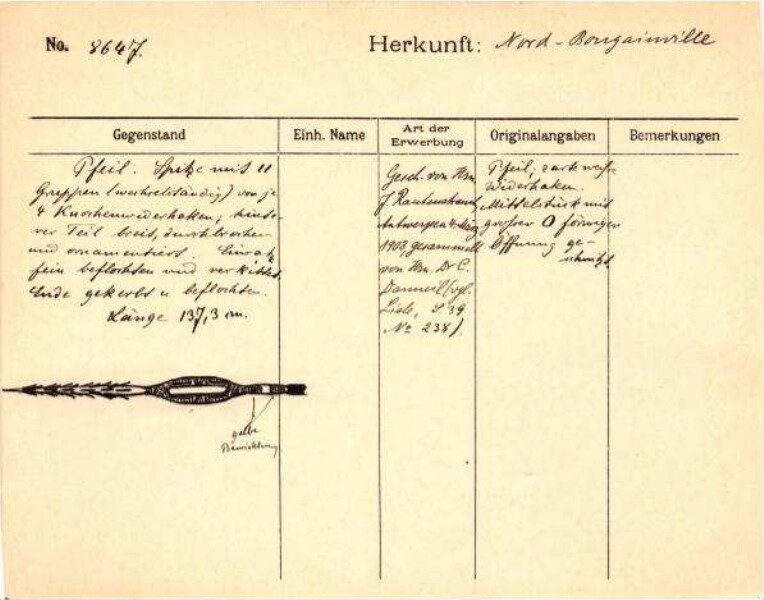 No. 8647.
Herkunft: Nord-Bougainville
Gegenstand
Einh. Name
Art der Erwerbung
Originalangaben
Bemerkungen
Pfeil. Spitze mit 11
Gruppen (wechselständig) von je
4 Knochenwiderhaken; hinte-
rer Teil breit, durchbrochen
und ornamentiert. Einsatz
fein beflochten und verkittet.
Ende gekerbt u beflochten.
Länge 137,3 cm.
Gesch. von Hrn.
J. Rautenstrauch
Antwerpen 4. März
1903, gesammelt
von Hrn. Dr C.
Danneil (vgl.
Liste, S. 39
No 238).
Pfeil,
Widerhaken.
Mittelstück mit
grosser O förmiger
Öffnung ge-
schnitzt
gelbe
Bewicklung